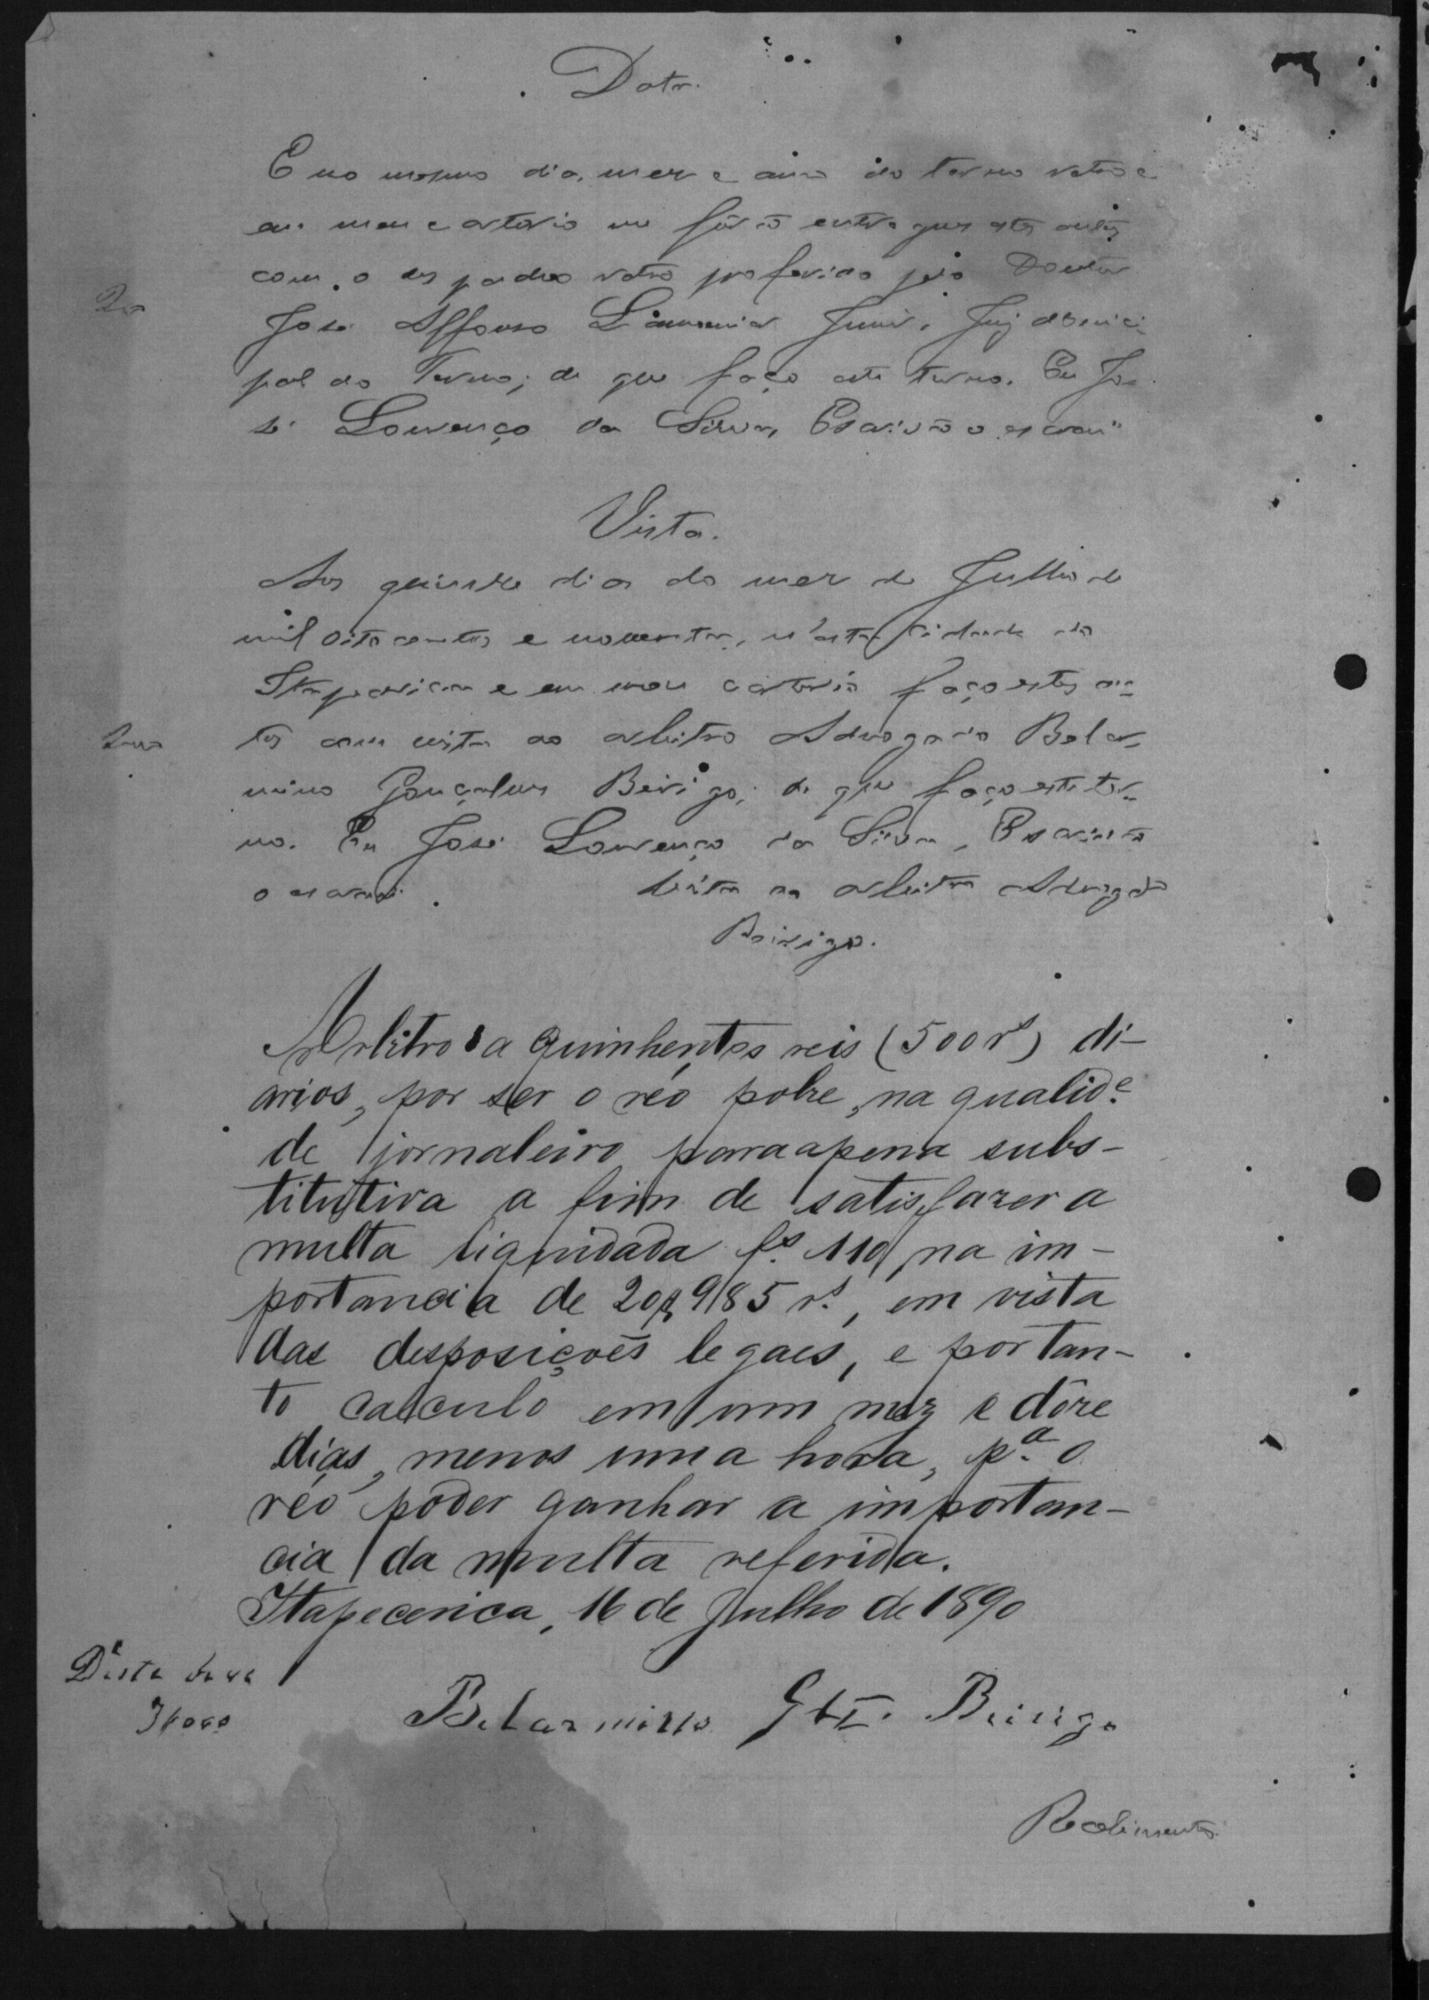 Data.
E no mesmo dia, mez e anno do termo retro e
em meu cartorio me forão entregues estes autos
com o despacho retro proferido pelo Doutor
José Affonso Lamounier Junior, Juiz Munici
pal do Termo; de que faço este termo. Eu Jo
sé Lourenço da Silva, Escrivão o escrevi
Vista.
Aos quinze dias do mez de Julho de
mil oito centos e noventa, n'esta cidade de
Itapecerica e em meu cartorio faço estes au-
tos com vista ao arbitro Advogado Belar-
mino Gonçalves Beirigo; de que faço este ter-
mo. Eu José Lourenço da Silva, Escrivão
o escrevi. Vista ao arbitro Advogado
Beirigo.
Arbitro a quinhentos reis (500 rs) di-
arios, por ser o réo pobre, na qualide.
de jornaleiro para a pena subs-
titutiva a fim de satisfazer a
multa liquidada fs. 110, na im-
portancia de 20$985 rs., em vista
das desposições legaes, e portan-
to calculo em um mez e dôze
dias, menos uma hora, pa. o
réo poder ganhar a importan-
cia da multa referida.
Itapecerica, 16 de Julho de 1890
Desta
Belarmino Glz. Beirigo
Recebimento